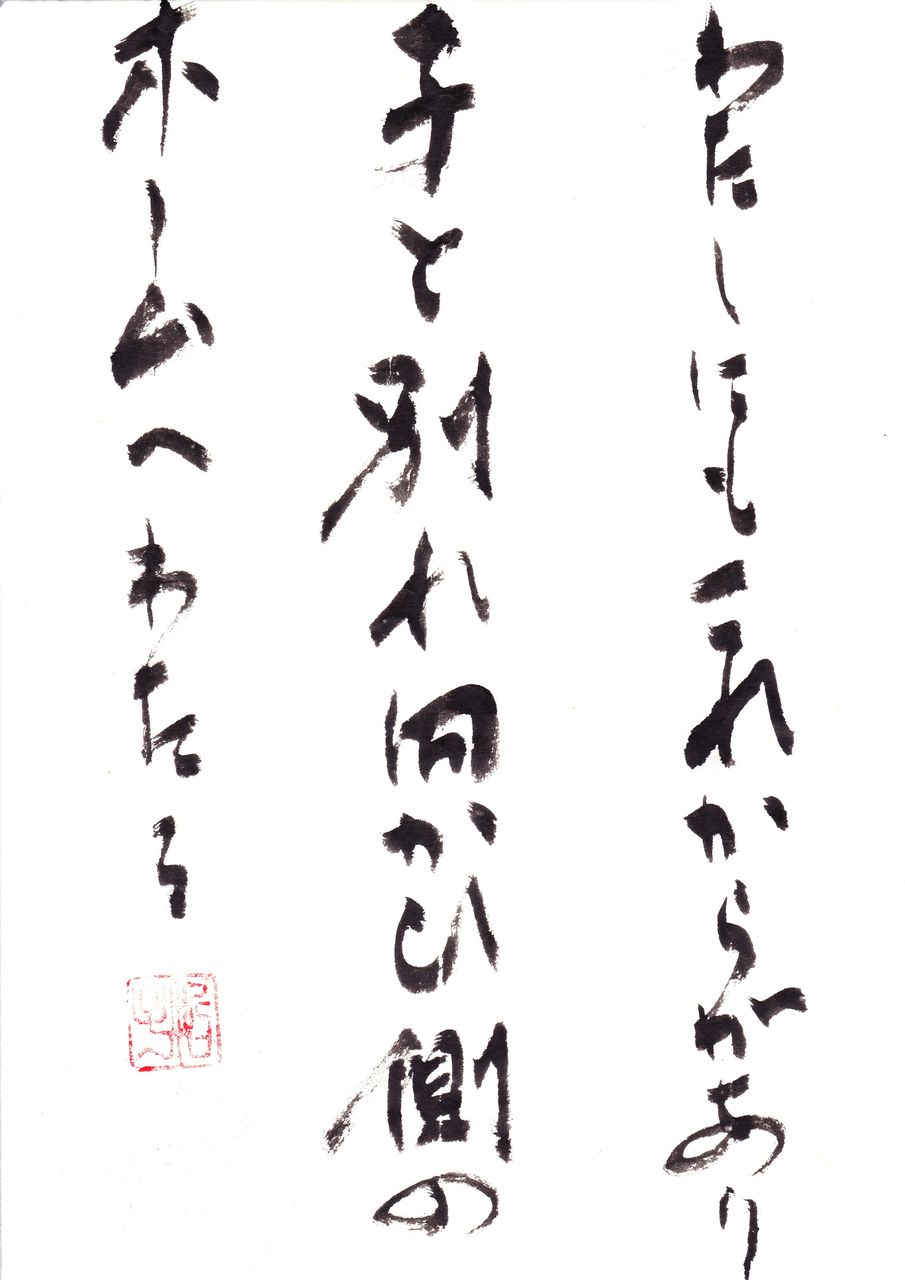 わたしにもこれからがあり
子と別れ向かひ側の
ホームへわたる